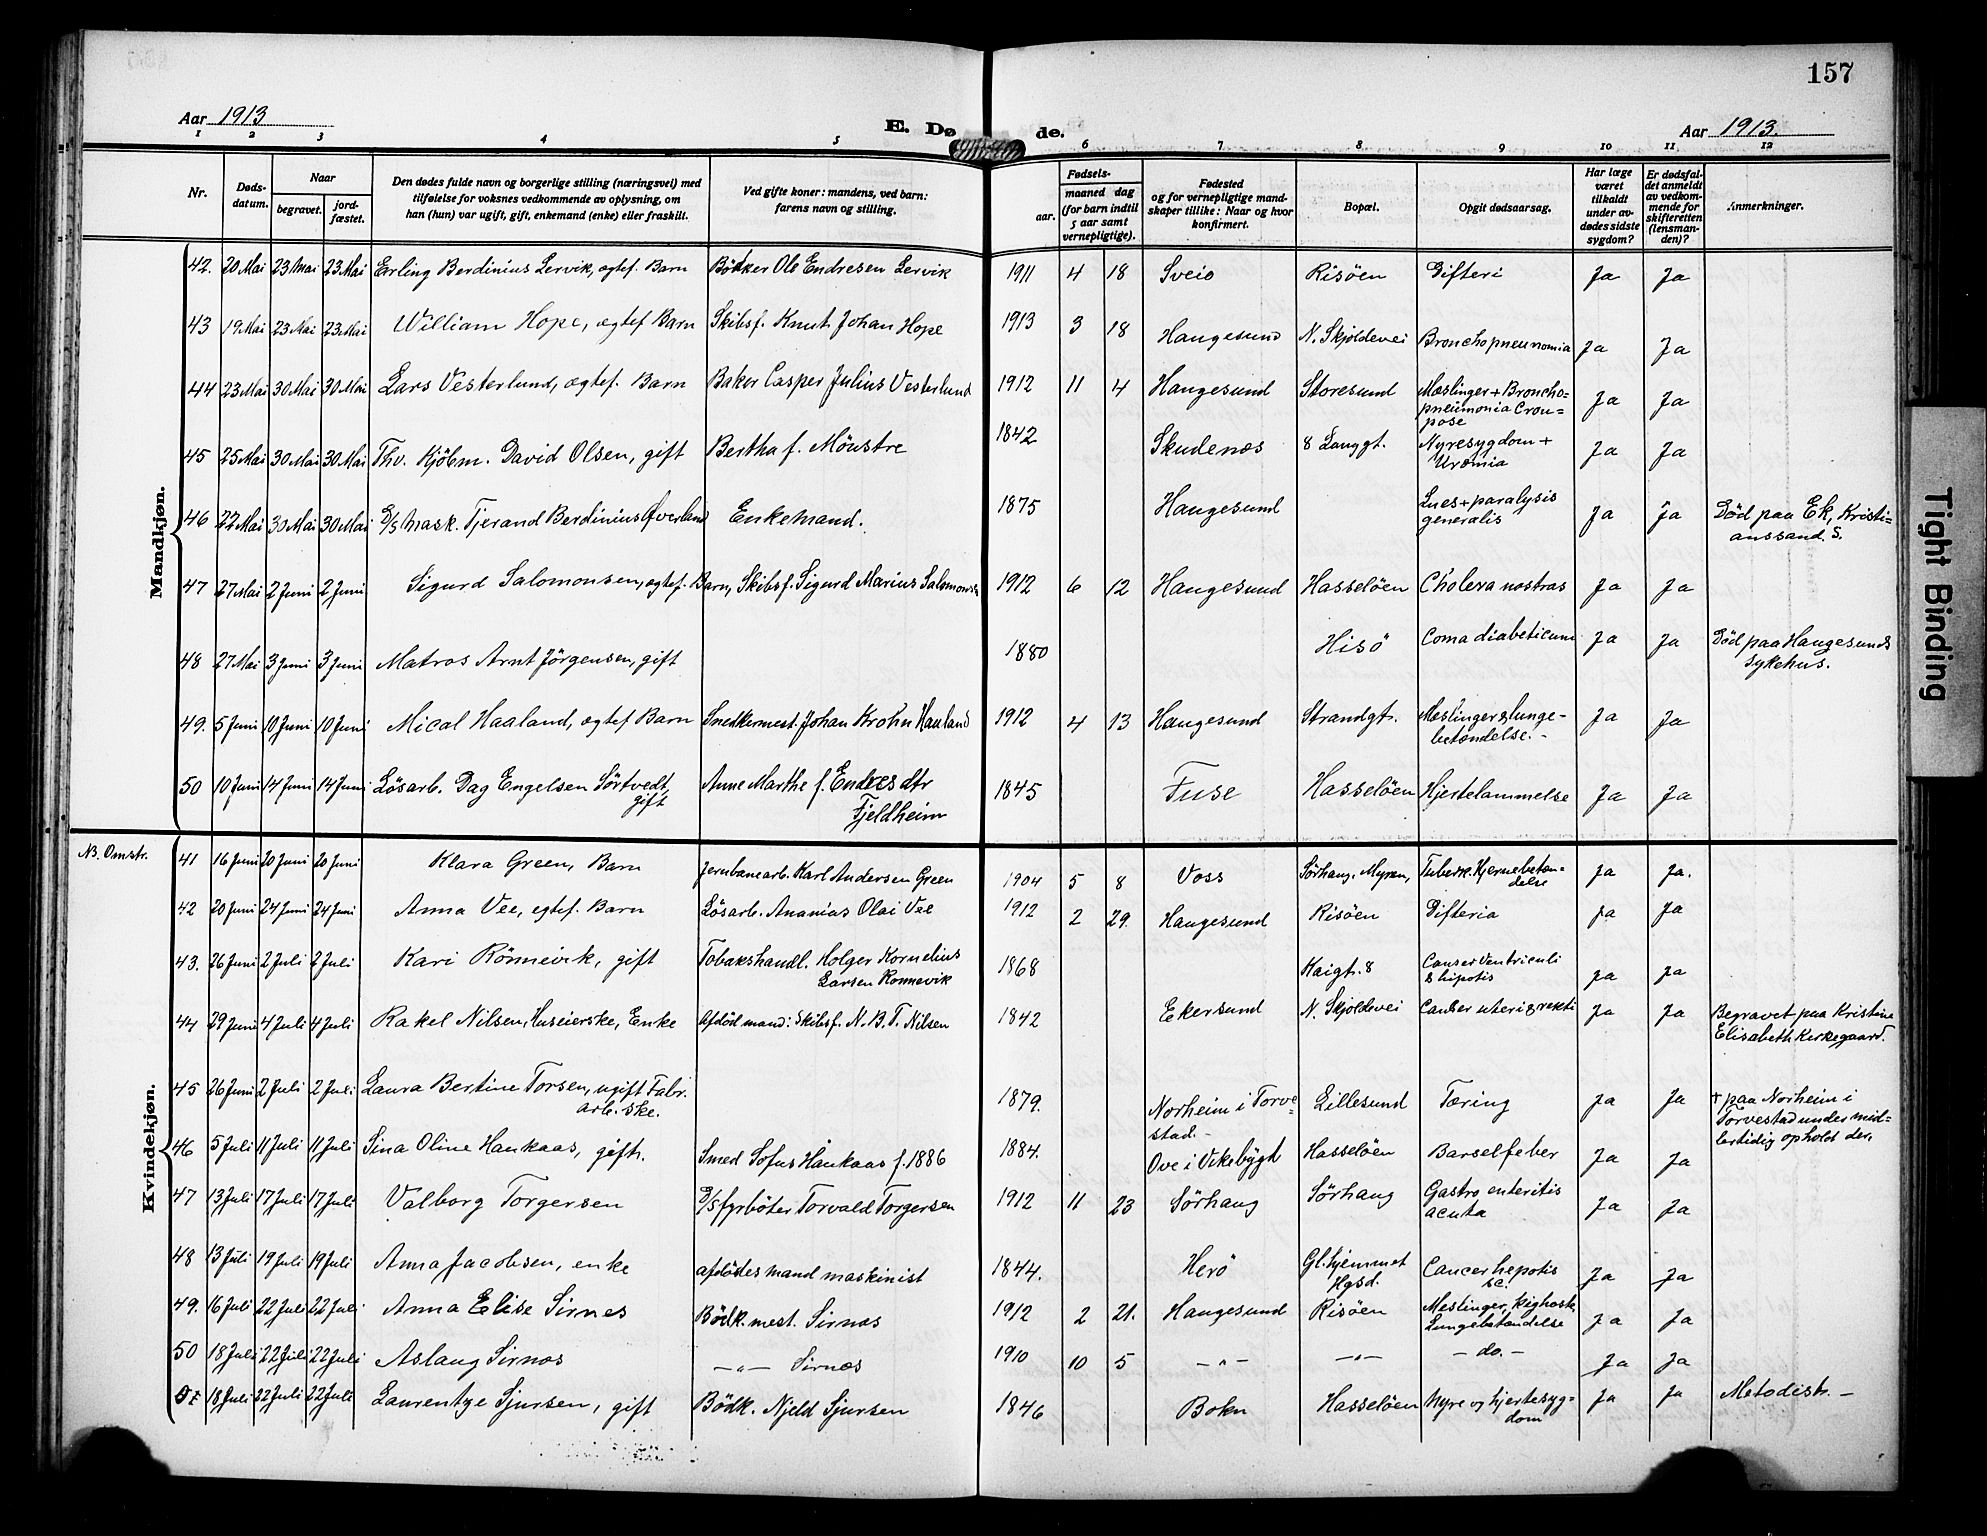 157
Aar 1913
E. Dø
de.
Aar 1913.
1 2 3 4 5 6 7 8 9 10 11 12
Nr.
Døds-
datum.
Naar
begravet.
jord-
fæstet.
Den dødes fulde navn og borgerlige stilling (næringsvei) med
tilføielse for voksnes vedkommende av oplysning, om
han (hun) var ugift, gift, enkemand (enke) eller fraskilt.
Ved gifte koner: mandens, ved barn:
farens navn og stilling.
Fødsels-
aar.
maaned dag
(for barn indtil
5 aar samt
vernepligtige).
Fødested
og for vernepligtige mand-
skaper tillike: Naar og hvor
konfirmert.
Bopæl.
Opgit dødsaarsag.
Har læge
været
tilkaldt
under av-
dødes sidste
sygdom?
Er dødsfal-
det anmeldt
av vedkom-
mende for
skifteretten
(lensman-
den)?
Anmerkninger.
Mandkjøn.
42. 20 Mai 23 Mai 23 Mai Erling Berdinius Lervik, ægtef. Barn Bödker Ole Endresen Lervik 1911 4 18 Sveio Risöen Difteri Ja Ja
43 19 Mai 23 Mai 23 Mai William Hope, ægtef Barn Skibsf. Knut Johan Hope 1913 3 18 Haugesund N. Skjoldevei Bronchopneunomia Ja Ja
44 23 Mai 30 Mai 30 Mai Lars Vesterlund, ægtef. Barn Baker Casper Julius Vesterlund 1912 11 4 Haugesund Storesund Mæslinger + Broncho=
pneumonia Crou=
pose Ja Ja
45 25 Mai 30 Mai 30 Mai Thv. Kjöbm. David Olsen, gift Bertha f. Mönstre 1842 Skudenæs 8 Langgt. Nyresygdom +
Uræmia Ja Ja
46 22 Mai 30 Mai 30 Mai D/S mask. Tjerand Berdinius Øverland Enkemand. 1875 Haugesund Lues + paralysis
generalis Ja Ja Död paa Ek, Kristi=
anssand. S.
47 27 Mai 2 Juni 2 Juni Sigurd Salomonsen, ægtef. Barn, Skibsf. Sigurd Marius Salomonsen 1912 6 12 Haugesund Hasselöen Cholera nostras Ja Ja
48 27 Mai 3 Juni 3 Juni Matros Arnt Jörgensen, gift 1880 Hisö Coma diabeticum Ja Ja Död paa Haugesunds
sykehus.
49. 5 Juni 10 Juni 10 Juni Mical Haaland, ægtef Barn Snedkermest. Johan Krohn Haaland 1912 4 13 Haugesund Strandgt. Mæslinger & lunge-
betændelse. - Ja Ja
50 10 Juni 14 Juni 14 Juni Løsarb. Dag Engelsen Sörtvedt,
gift Anne Marthe f. Endresdtr
Fjeldheim 1845 Fuse Hasselöen Hjertelammelse Ja Ja
Kvindekjøn.
NB. Omstr.
41 16 Juni 20 Juni 20 Juni Klara Green, Barn Jernbanearb. Karl Andersen Green 1904 5 8 Voss Sørhaug. Myren, Tuberk. Hjernebetæn-
delse Ja Ja.
42 20 Juni 24 Juni 24 Juni Anna Vee, egtef. Barn Løsarb. Ananias Olai Vee 1912 2 29. Haugesund Risöen Difteria Ja Ja
43. 26 Juni 2 Juli 2 Juli Kari Rönnevik, gift Tobakshandl. Holger Kornelius
Larsen Rønnevik 1868 Kaigt. 8 Canser Ventriculi
& hipotis Ja Ja
44 29 Juni 4 Juli 4 Juli Rakel Nilsen, Huseierske, Enke Afdöd mand: Skibsf. N. B. T. Nilsen 1842 Ekersund N. Skjoldevei Canser uteri & rekti Ja Ja Begravet paa Kristine
Elisabeth Kirkegaard.
45 26 Juni 2 Juli 2 Juli Laura Bertine Torsen, ugift Fabr.
arb.ske. 1879. Norheim i Torve=
stad.- Lillesund Tæring Ja Ja † paa Norheim i
Torvestad under mid-
lertidig ophold der.
46 5 Juli 11 Juli 11 Juli Sina Oline Haukaas, gift. Smed Sofus Haukaas f. 1886 1884. Ove i Vikebygd Hasselöen Barselfeber Ja Ja
47 13 Juli 17 Juli 17 Juli Valborg Torgersen D/S fyrböter Torvald Torgersen 1912 11 23 Sörhaug Sörhaug Gastro enteritis
acuta Ja Ja
48 13 Juli 19 Juli 19 Juli Anna Jacobsen, enke afdödes mand maskinist 1844. Herö Gl.hjemmet
Hgsd. Cancer hepotis
sc. Ja Ja
49. 16 Juli 22 Juli 22 Juli Anna Elise Sirnes Bödk. mest. Sirnæs 1912 2 21. Haugesund Risöen Meslinger, kighoste,
Lungebetændelse Ja Ja
50 18 Juli 22 Juli 22 Juli Aslaug Sirnæs -"- Sirnæs 1910 10 5 -"- -"- - do. - Ja Ja
18 Juli 22 Juli 22 Juli Laurentze Sjursen, gift Bödk. Njeld Sjursen 1846 Bokn Hasselöen Nyre og hjertesyg=
dom Ja Ja Metodist. -
Tight Binding